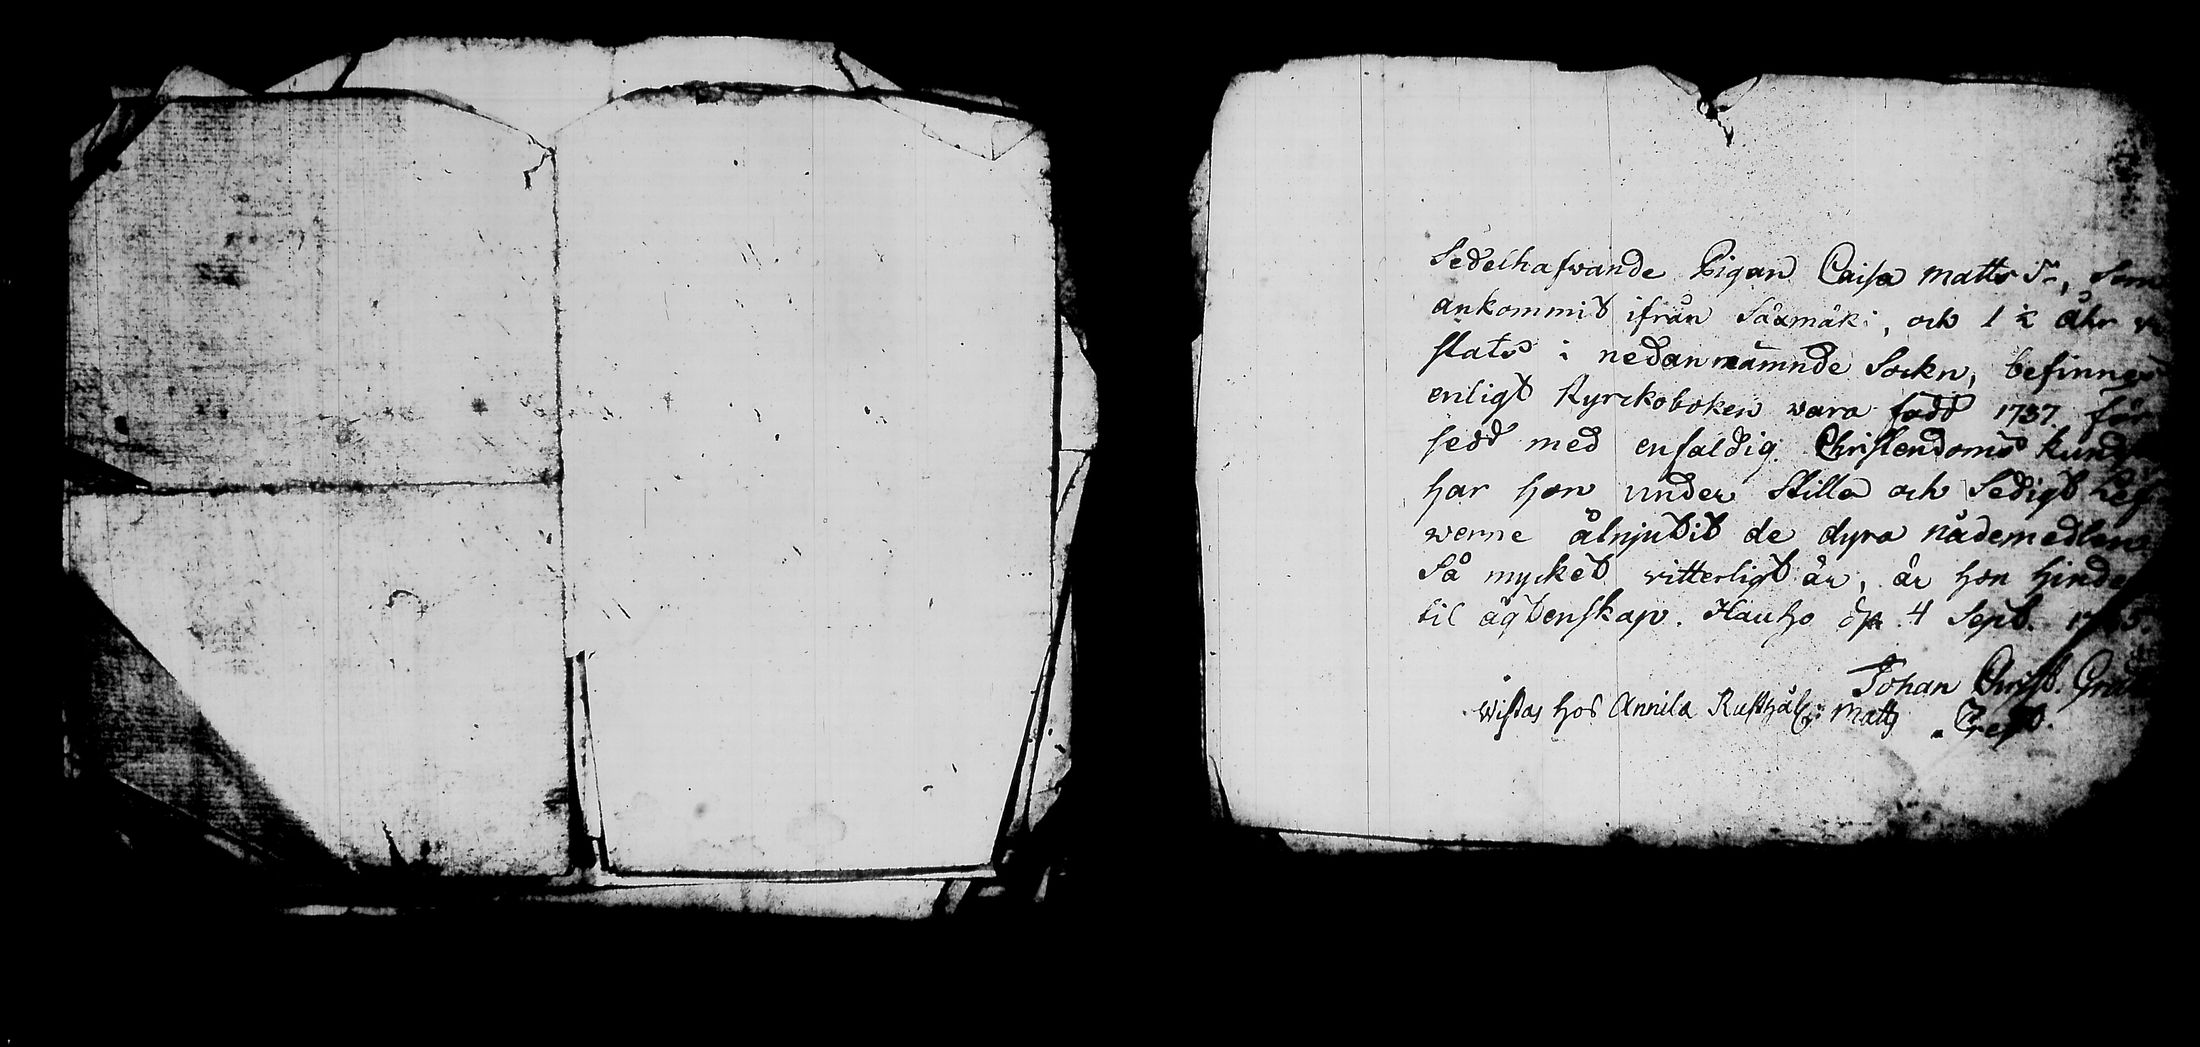 Sedelhafvande Pigan Caisa Matts Dr, som
ankommit ifrån Sääxmäki, och 1 ½ åhr
stats i nedannämnde Sockn, befinnes
enligt Kyrckoboken vara född 1737. för
sedd med enfaldig Christendoms kund
har hon under stilla och sedigt Lef
werne åtnjutit de dyra nådemedlen.
Så mycket vitterligt är, är hon hinde
til ägtenskap. Hauho dn 4 Sept.
Johan Christ.
Wistas hos Annila Rusthåll: Matts